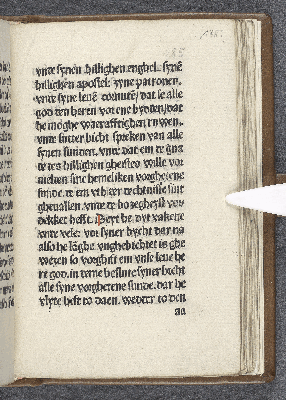 vnde synen hillighen enghel. synē
hillighen apostel. syne patronen.
vnde syne leuē. dat se alle
god den heren vor ene bydden. dat
he moghe waraftighen ruwen.
vnde lutter bicht spreken van alle
synen sunden. vnde dat em de gna
de des hillighen gheistes wille vor
melden syne hemeliken vorghetene
sunde. de em vth der dechtnisse sint
ghevallen. vnde de bozegheyst vor
decket hefft. Deyt he dyt vakene
vnde vele. vor syner bycht dar na
also he lāghe vnghebichtet is ghe
wezen so vorghift em vnse leue he
re god. in deme deslute syner bicht
alle syne vorghetene sunde. dar he
vlyte heft to daen. wedder to den
aa